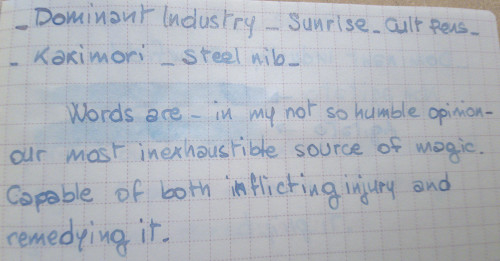 - Dominant Industry - Sunrise - Cult Pens -
- Kakimori - Steel nib -
Words are - in my not so humble opinion -
our most inexhaustible source of magic.
Capable of both inflicting injury and
remedying it.